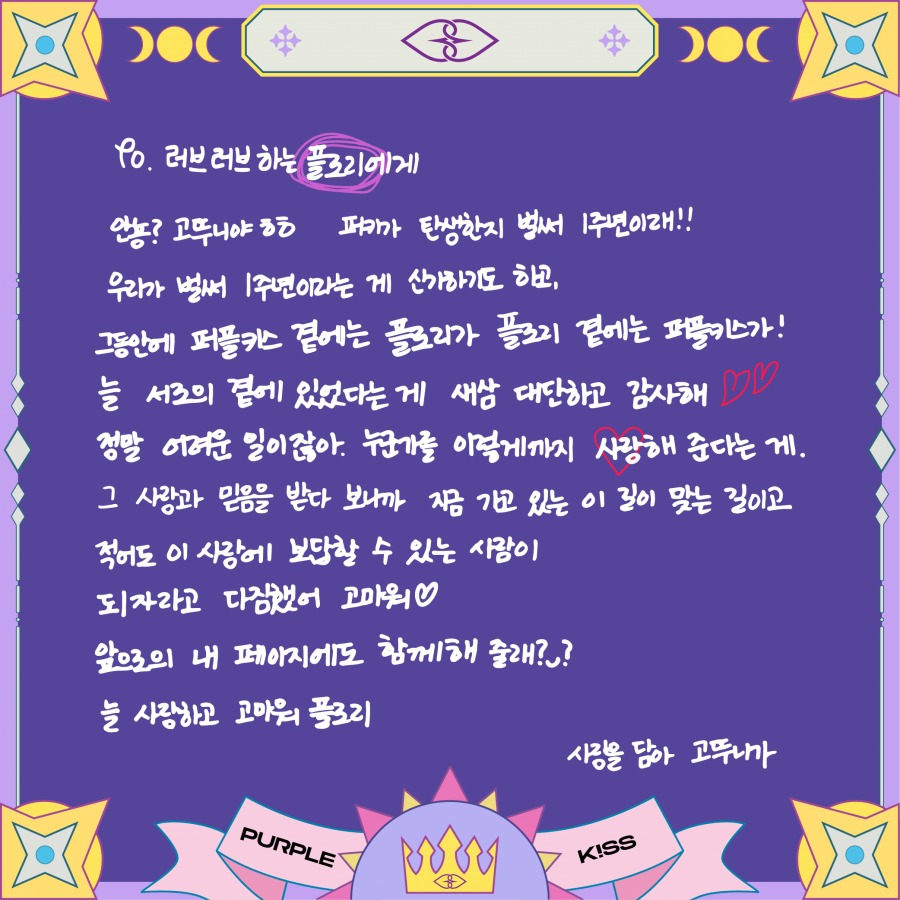 To. 러브러브하는 플로리에게
안뇽? 고뚜니야 ㅎㅎ 퍼키가 탄생한지 벌써 1주년이래!!
우리가 벌써 1주년이라는 게 신기하기도 하고,
그동안에 퍼플키스 곁에는 플로리가 플로리 곁에는 퍼플키스가!
늘 서로의 곁에 있었다는 게 새삼 대단하고 감사해 ♡♡
정말 어려운 일이잖아. 누군가를 이렇게까지 사랑해 준다는 게.
그 사랑과 믿음을 받다 보니까 지금 가고 있는 이 길이 맞는 길이고
적어도 이 사랑에 보답할 수 있는 사람이
되자라고 다짐했어 고마워♡
앞으로의 내 페이지에도 함께해 줄래?◡?
늘 사랑하고 고마워 플로리
사랑을 담아 고뚜니가
PURPLE K!SS